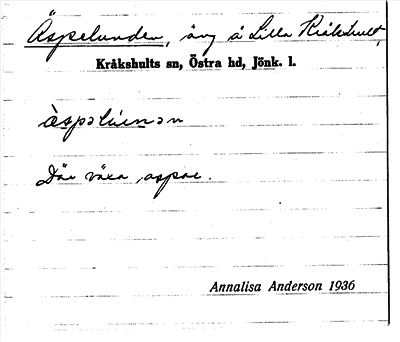 Äspelunden, äng å Lilla Kråkshult,
Kråkshults sn, Östra hd, Jönk. l.
Där växa aspar.
Annalisa Anderson 1936